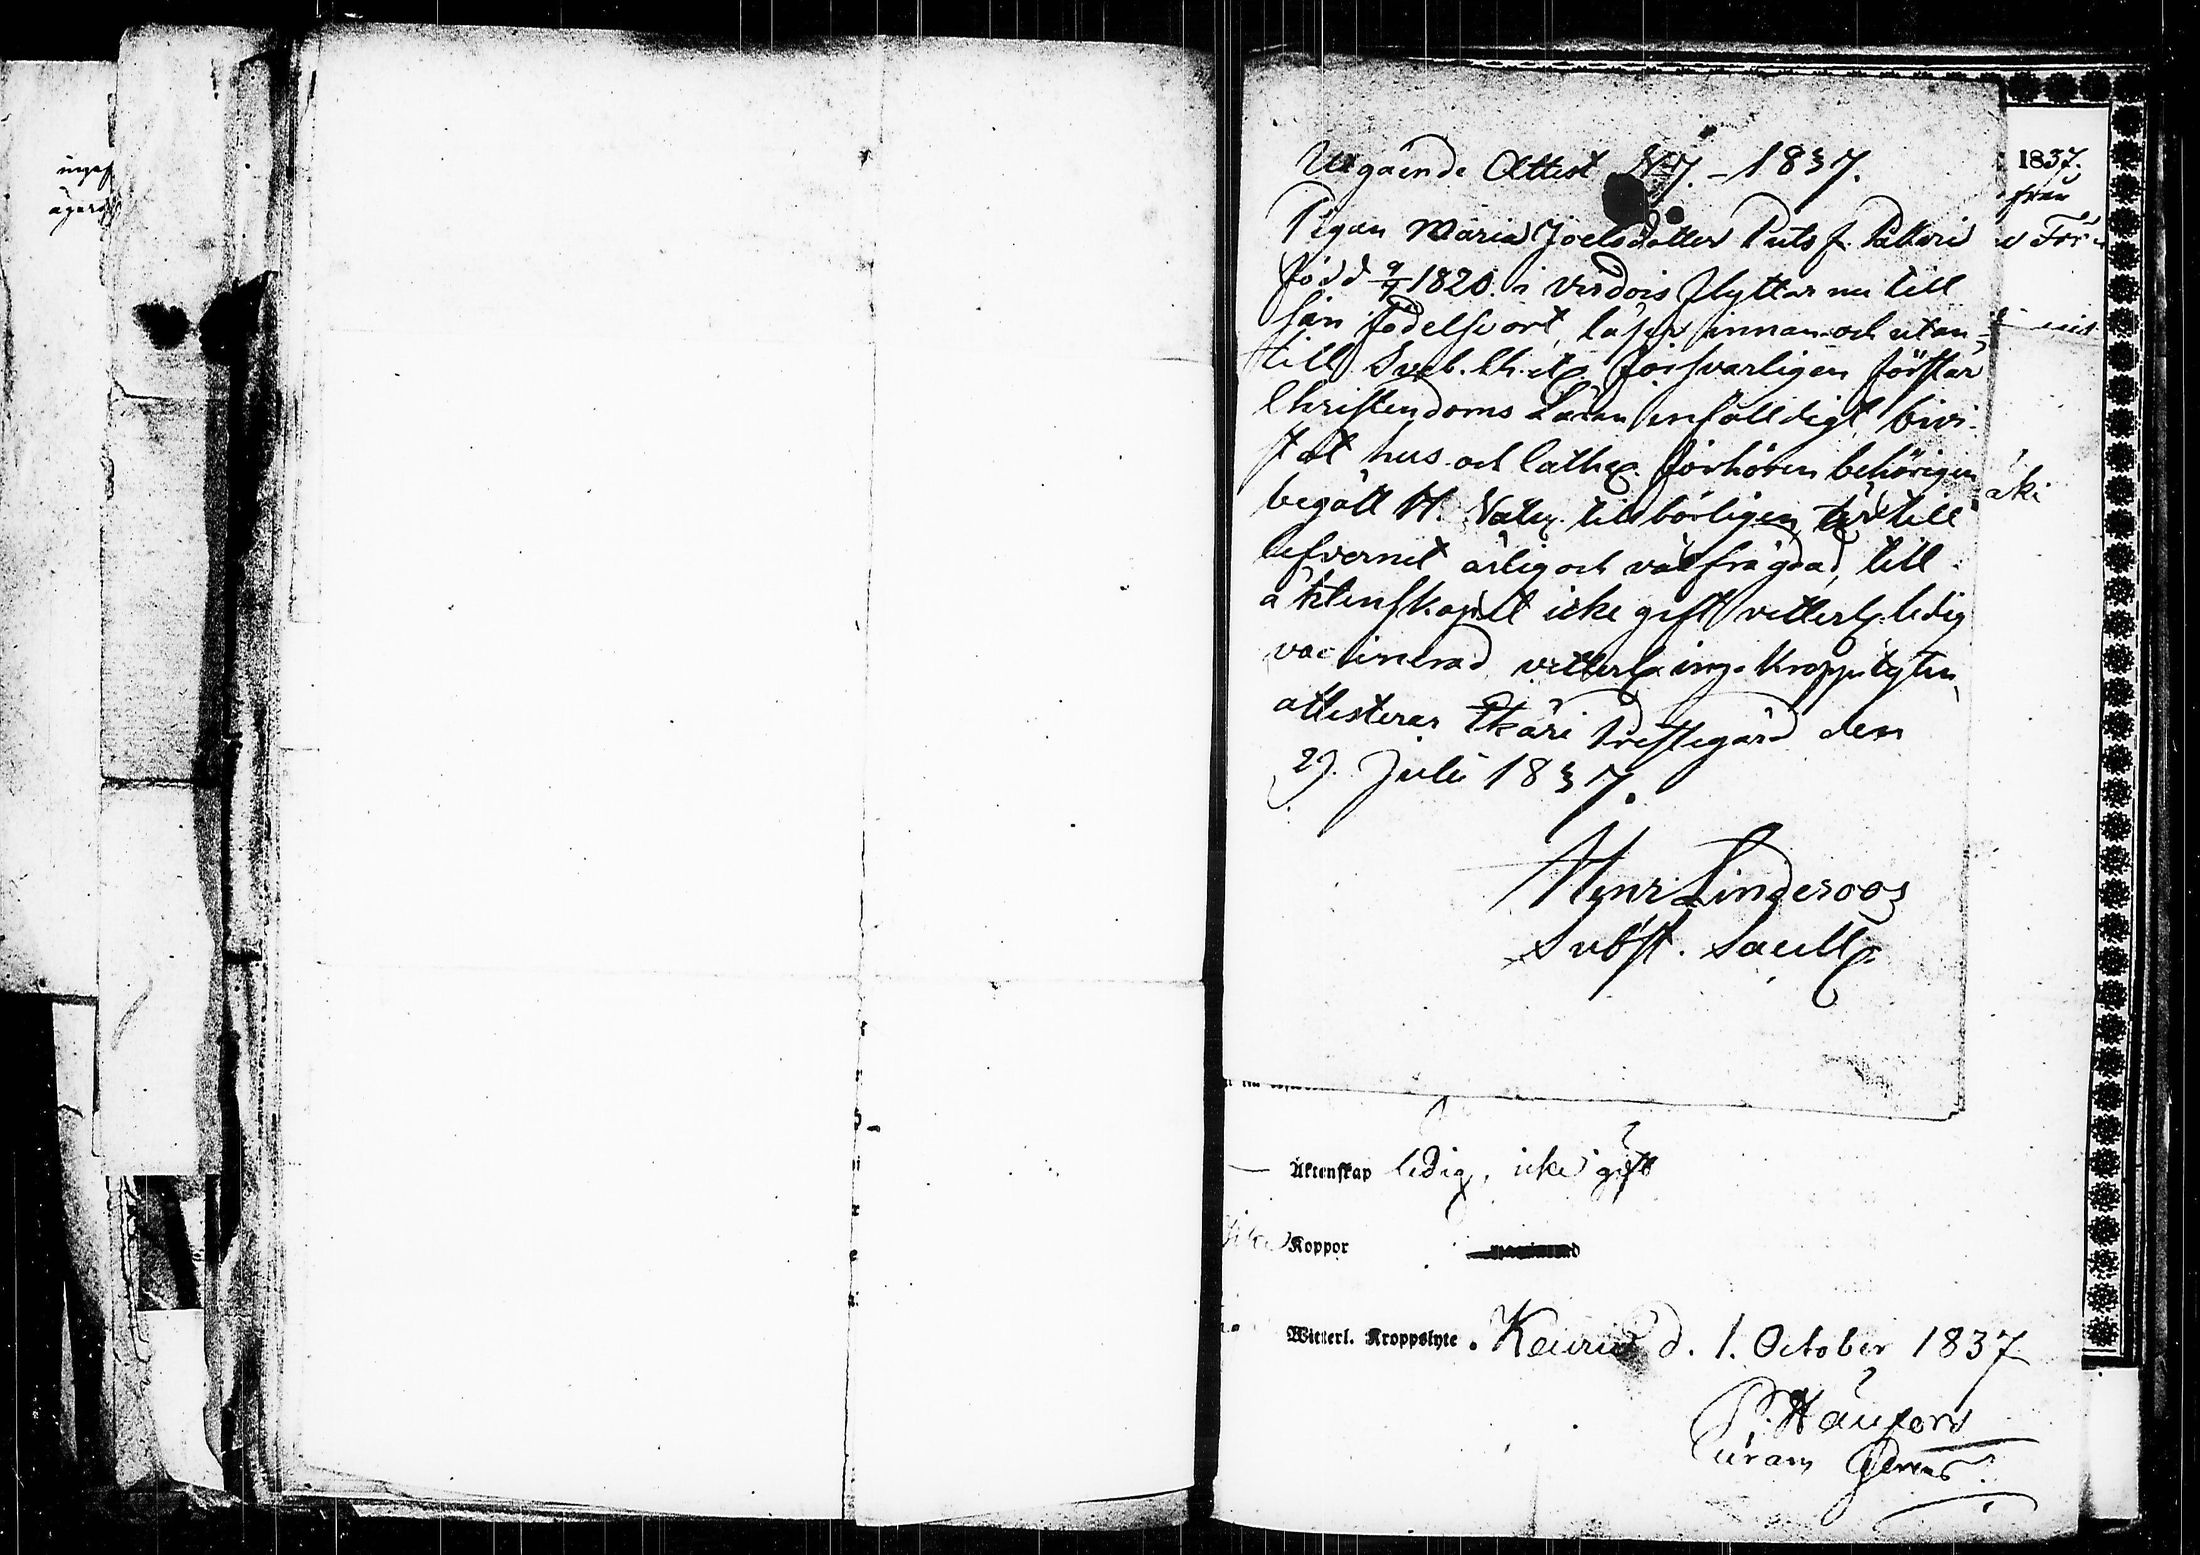 Utgående Attest N 7. – 1837.
Pigan Maria Joelsdotter Puts f. Patteri
född 9/7 1820. i Virdois flyttar nu till
sin födelseort, läser innan och utan-
till Sveb. Ch. et försvarligen förstår
Christendoms Läran enfaldigt bivi-
stat hus och läthe förhören behörigen
begått H. Nattv. tillbörligen, är till
lefvernet ärlig och välfrägdad, till
äktenskapet icke gift vetterl. ledig
vaccinerad vetterl. inga Kroppslyten,
attesterar Etsäri Prestegård den
29. Julii 1837.
Henr Linderoos
Subst. Sacell.
1837.
från
äki
Äktenskap ledig, icke gift
Koppor
Witterl. Kroppslyte. Keuru d. 1. October 1837